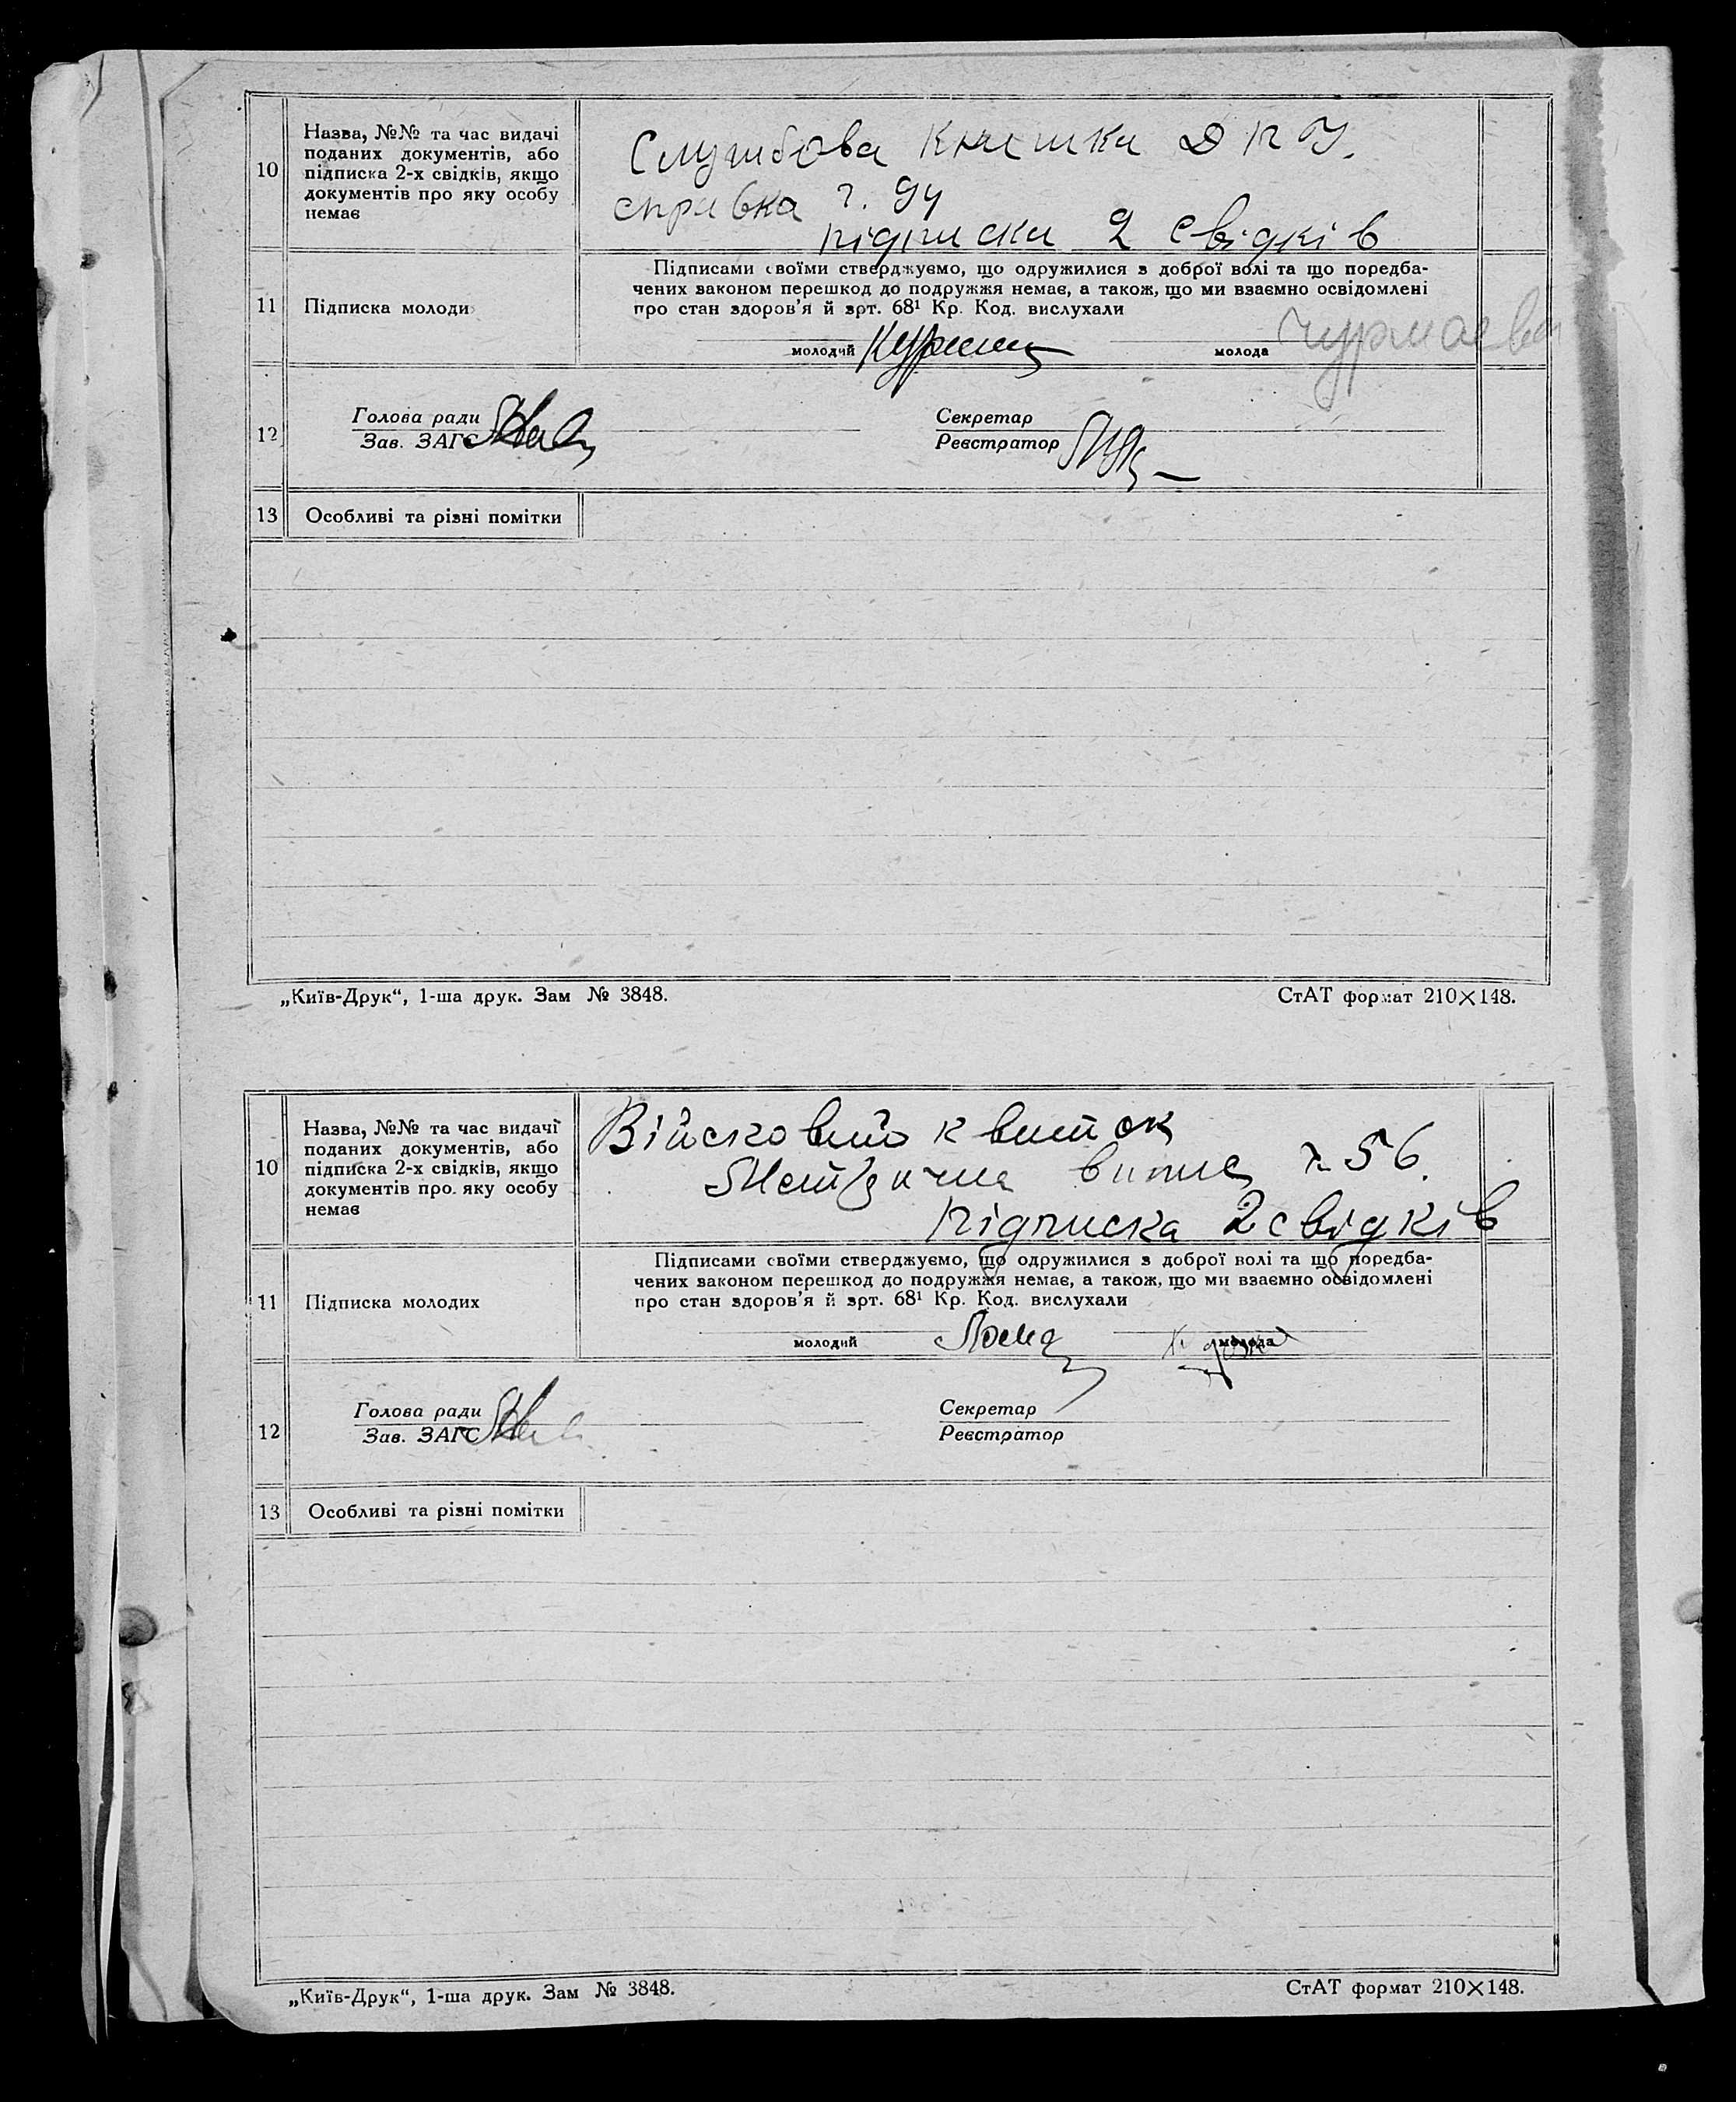 10
Назва, №№ та час видачі
поданих документів, або
підписка 2-х свідків, якщо
документів про яку особу
немає
Службова Книжка Д П У.
справка ч. 94
підписка 2 свідків
11
Підписка молоди
Підписами своїми стверджуємо, що одружилися з доброї волі та що поредба-
чених законом перешкод до подружжя немає, а також, що ми взаємно освідомлені
про стан здоров'я й зрт. 68¹ Кр. Код. вислухали
молодий
молода Чурмаева
12
Голова ради
Зав. ЗАГС
Секретар
Реєстратор
13
Особливі та різні помітки
„Київ-Друк“, 1-ша друк. Зам № 3848.
СтАТ формат 210×148.
10
Назва, №№ та час видачі
поданих документів, або
підписка 2-х свідків, якщо
документів про яку особу
немає
Військовий квиток
Метрична випис 56
підписка 2 свідків
11
Підписка молодих
Підписами своїми стверджуємо, що одружилися з доброї волі та що поредба-
чених законом перешкод до подружжя немає, а також, що ми взаємно освідомлені
про стан здоров'я й зрт. 68¹ Кр. Код. вислухали
молодий
молода
12
Голова ради
Зав. ЗАГС
Секретар
Реєстратор
13
Особливі та різні помітки
„Київ-Друк“, 1-ша друк. Зам № 3848.
СтАТ формат 210×148.